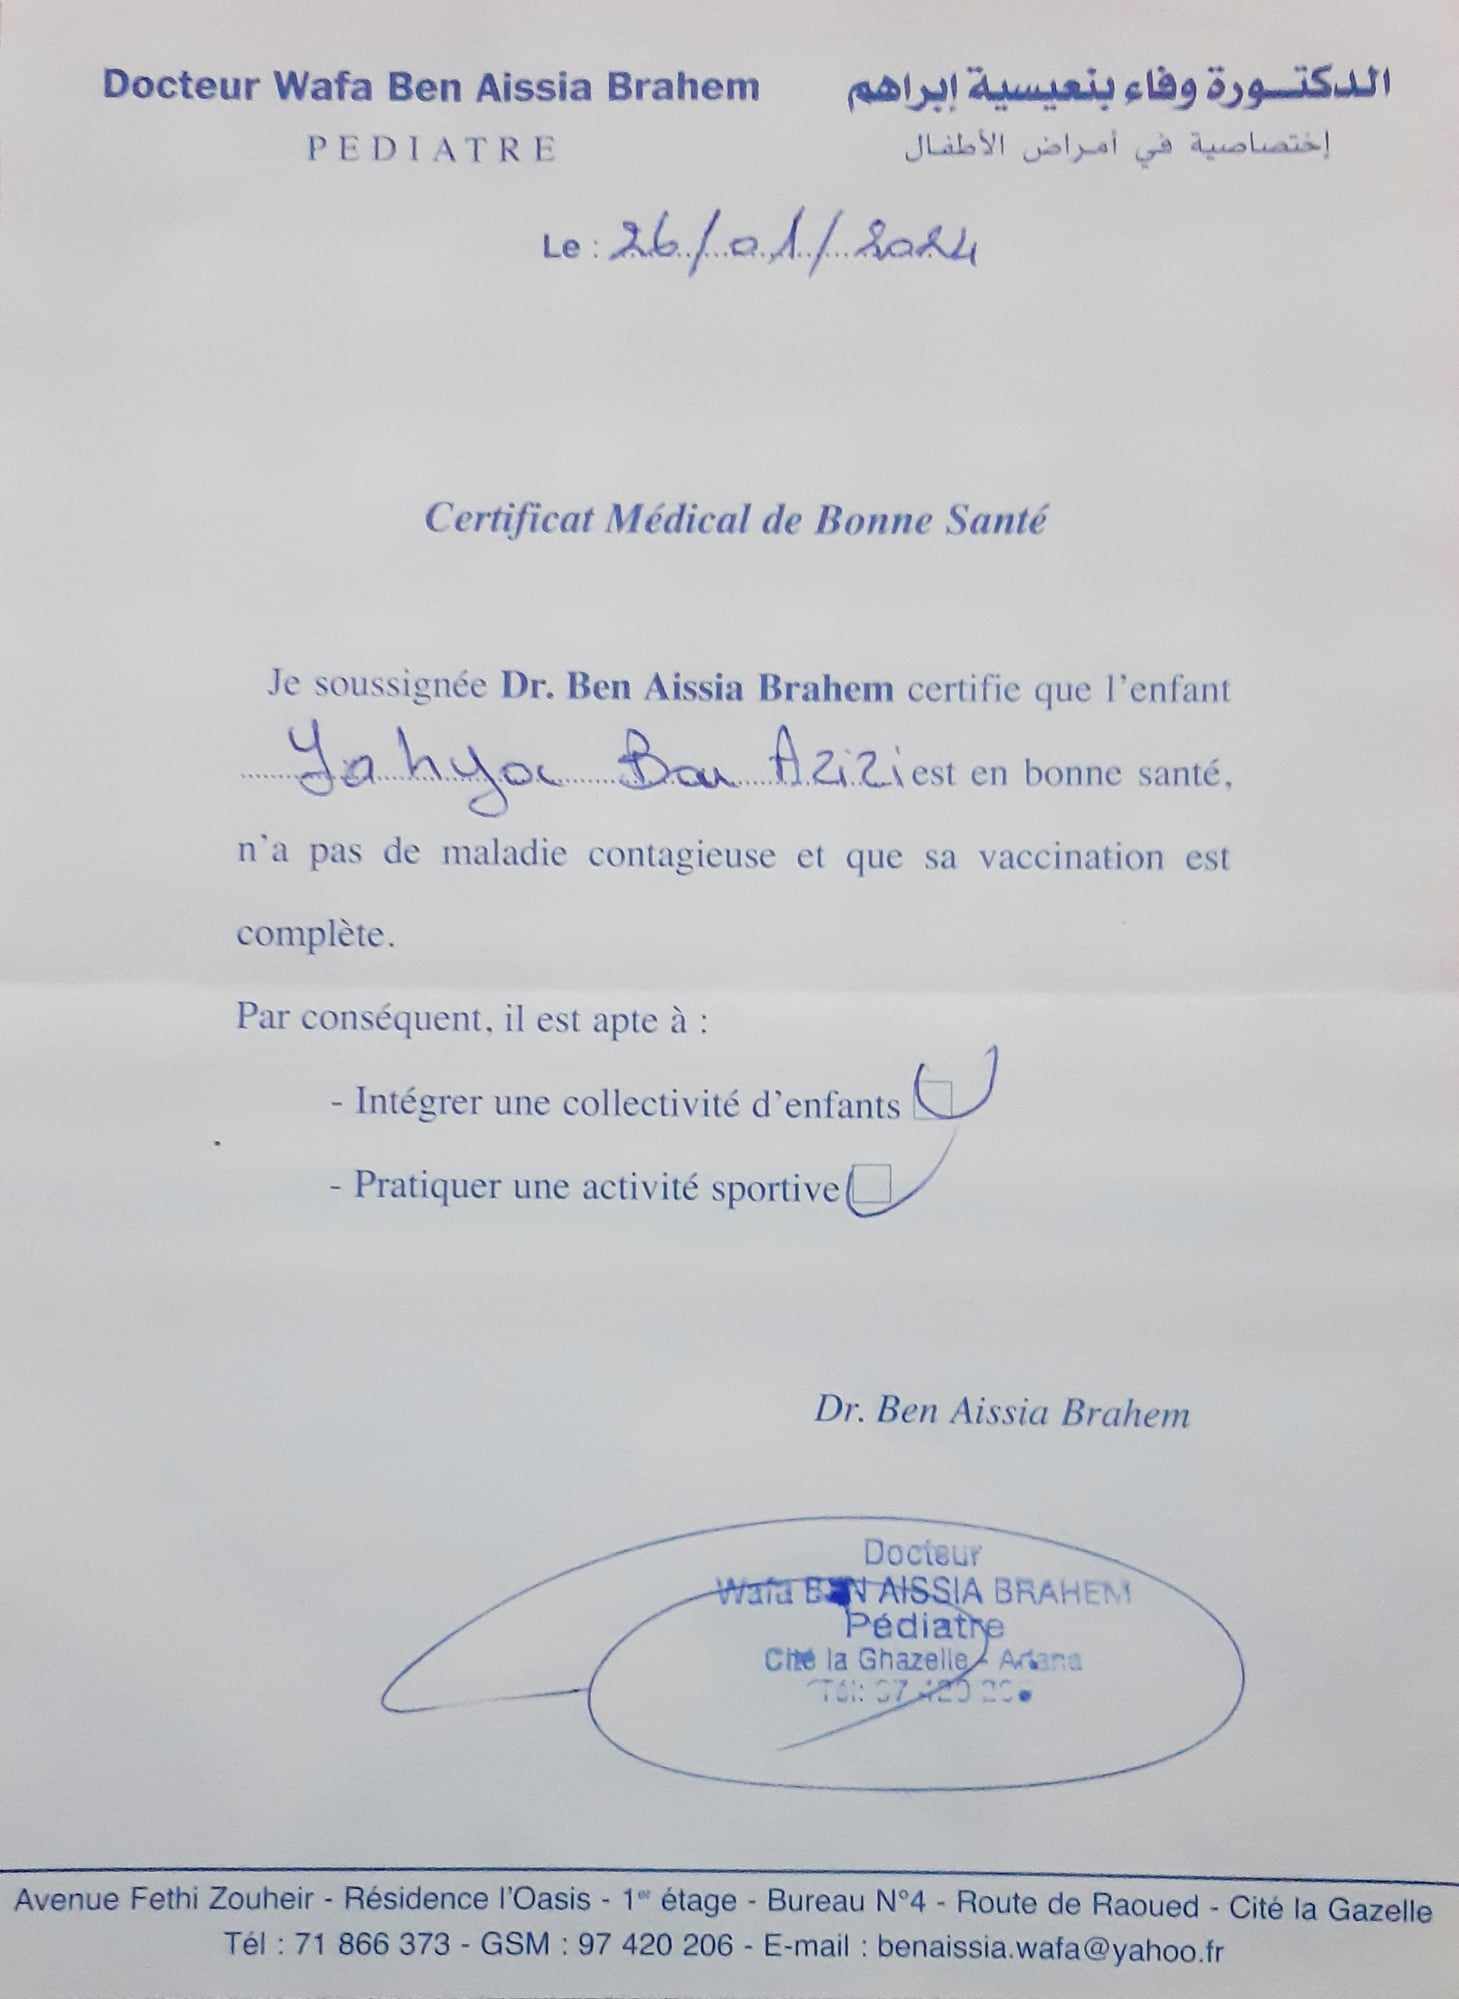 Docteur Wafa Ben Aissia Brahem
PEDIATRE
الدكتورة وفاء بنعيسية إبراهم
إختصاصية في أمراض الأطفال
Le : 26/01/2024
Certificat Médical de Bonne Santé
Je soussignée Dr. Ben Aissia Brahem certifie que l'enfant
Yahya Ben Azizi est en bonne santé,
n'a pas de maladie contagieuse et que sa vaccination est
complète.
Par conséquent, il est apte à :
- Intégrer une collectivité d'enfants
- Pratiquer une activité sportive
Dr. Ben Aissia Brahem
Docteur
Wafa BEN AISSIA BRAHEM
Pédiatre
Cité la Ghazelle - Ariana
Tél: 97 420
Avenue Fethi Zouheir - Résidence l'Oasis - 1er étage - Bureau N°4 - Route de Raoued - Cité la Gazelle
Tél : 71 866 373 - GSM : 97 420 206 - E-mail : benaissia.wafa@yahoo.fr